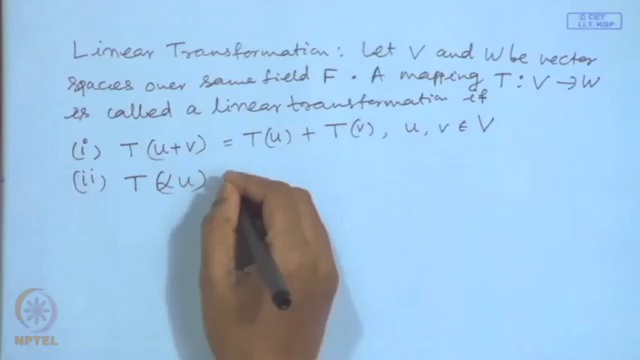 © CET
I.I.T. KGP
Linear Transformation: Let V and W be vector
spaces over same field F. A mapping T: V → W
is called a linear transformation if
(i) T(u+v) = T(u) + T(v), u, v ∈ V
(ii) T(αu)
NPTEL